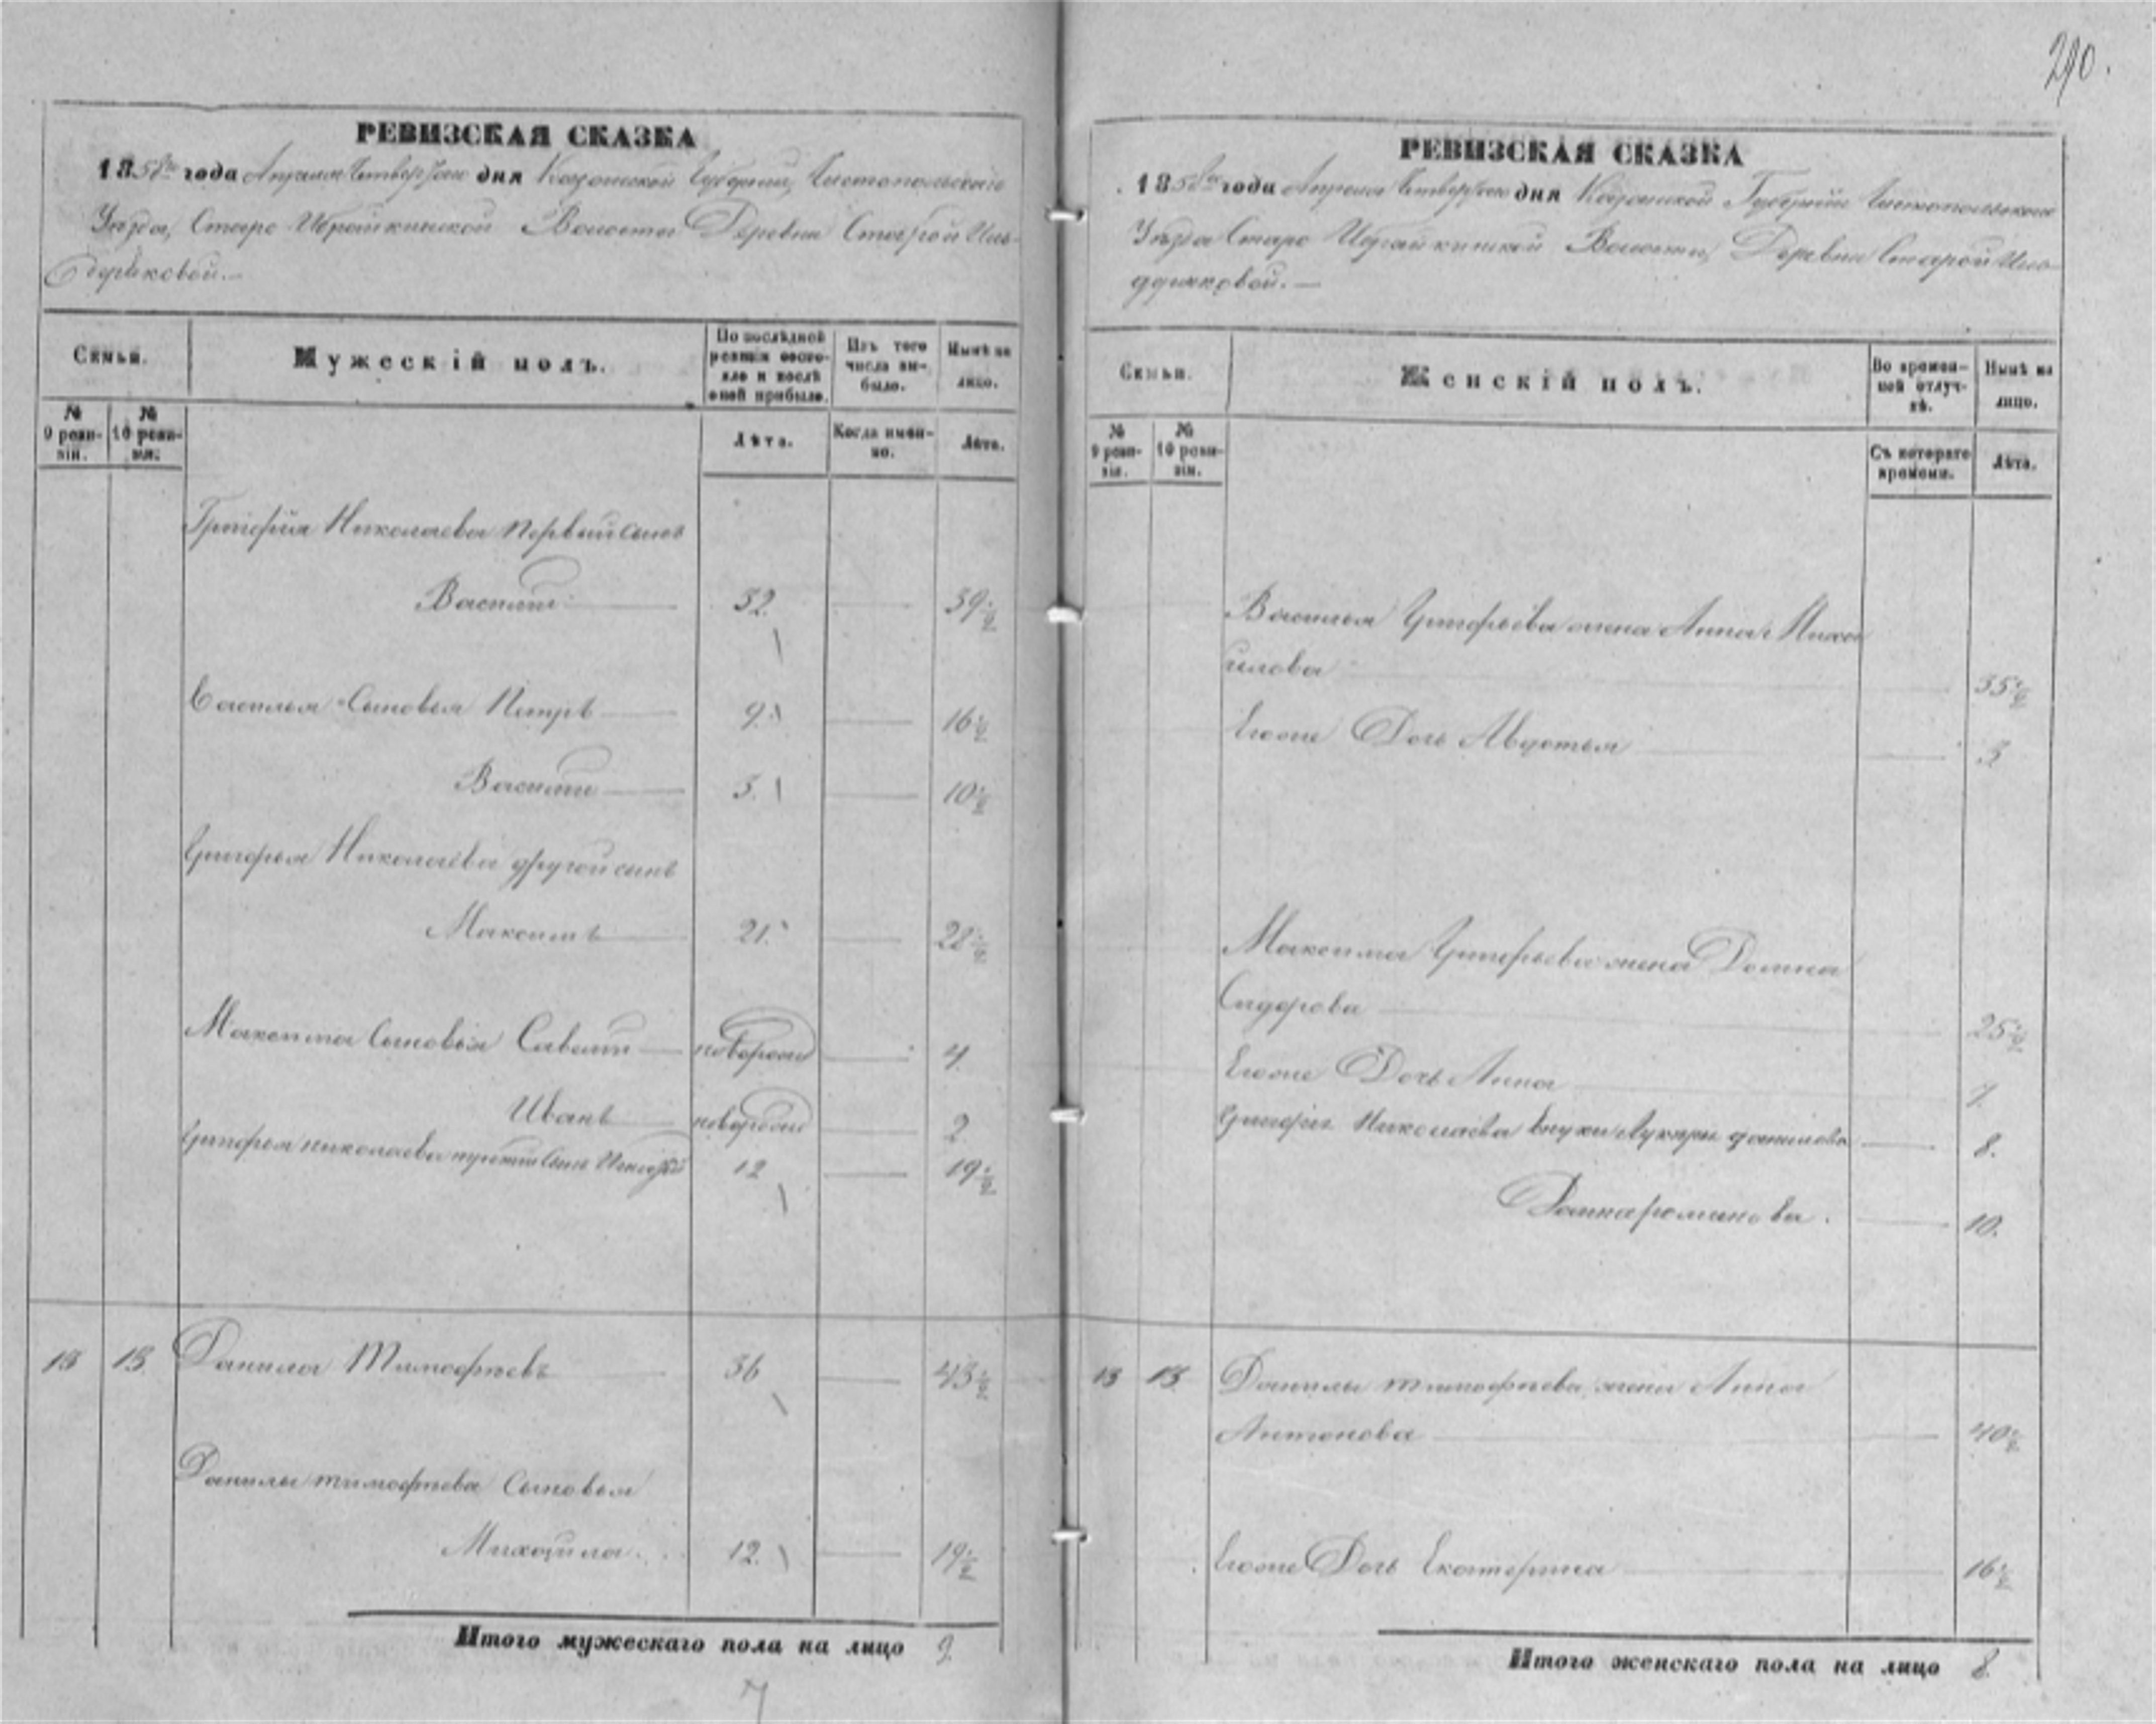 210.
РЕВИЗСКАЯ СКАЗКА
1858го года Апреля Четвертаго дня Казанской Губернии, Чистопольскаго
Уѣзда, Старо Ибрайкинской Волости Деревни Старой Иль-
деряковой.—
Семьи.
Мужескій полъ.
По послѣдней ревизіи состояло и послѣ оной прибыло.
Изъ того числа выбыло.
Нынѣ на лицо.
№ 9 ревизіи.
№ 10 ревизіи.
Лѣта.
Когда именно.
Лѣта.
Григорья Николаева первый сынъ
Василий — 32. — 39 1/2
Василья Сыновья Петръ — 9. — 16 1/2
Василий — 3. — 10 1/2
Григорья Николаева другой сынъ
Максимъ — 21. — 28 1/2
Максима Сыновья Савелий — новорожд — 4.
Иванъ — новорожд — 2.
Григорья николаева третий Сынъ 12 — 19 1/2
13 13. Данила Тимофѣевъ — 36 — 43 1/2
Данилы тимофѣева Сыновья
Михайла. 12. — 19 1/2
Итого мужескаго пола на лицо 9.
7
РЕВИЗСКАЯ СКАЗКА
1858го года Апреля Четвертаго дня Казанской Губернии Чистопольскаго
Уѣзда Старо Ибрайкинской Волости, Деревни Старой Иль-
деряковой.—
Семьи.
Женскій полъ.
Во временной отлучкѣ.
Нынѣ на лицо.
№ 9 ревизіи.
№ 10 ревизіи.
Съ котораго времени.
Лѣта.
Василья Григорьева жена Анна Миха
илова — 35 1/2
Егоже Дочь Авдотья — 3
Максима Григорьева жена Домна
Сидорова — 25 1/2
Егоже Дочь Анна — 7.
Григорья Николаева внуки Лукерья данилова — 8.
10.
13 13 Данилы тимофѣева жена Анна
Антонова — 40 1/2
Егоже Дочь Екатерина — 16 1/2
Итого женскаго пола на лицо 8.